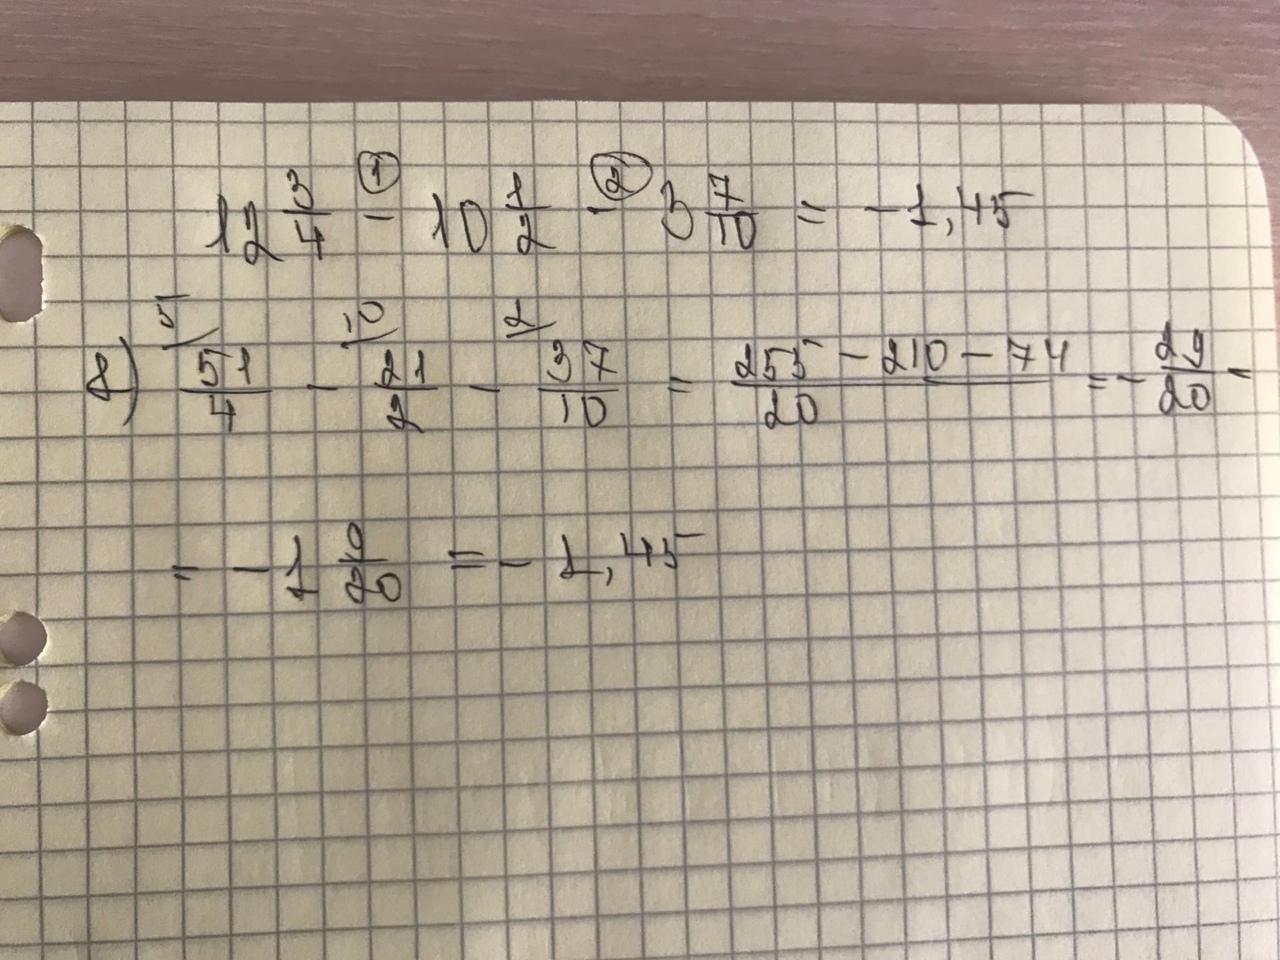 12 3/4 - ① 10 1/2 - ② 3 7/10 = -1,45
1) 5/ 51/4 - 10/ 21/2 - 2/ 37/10 = (255 - 210 - 74)/20 = - 29/20 =
= -1 9/20 = -1,45